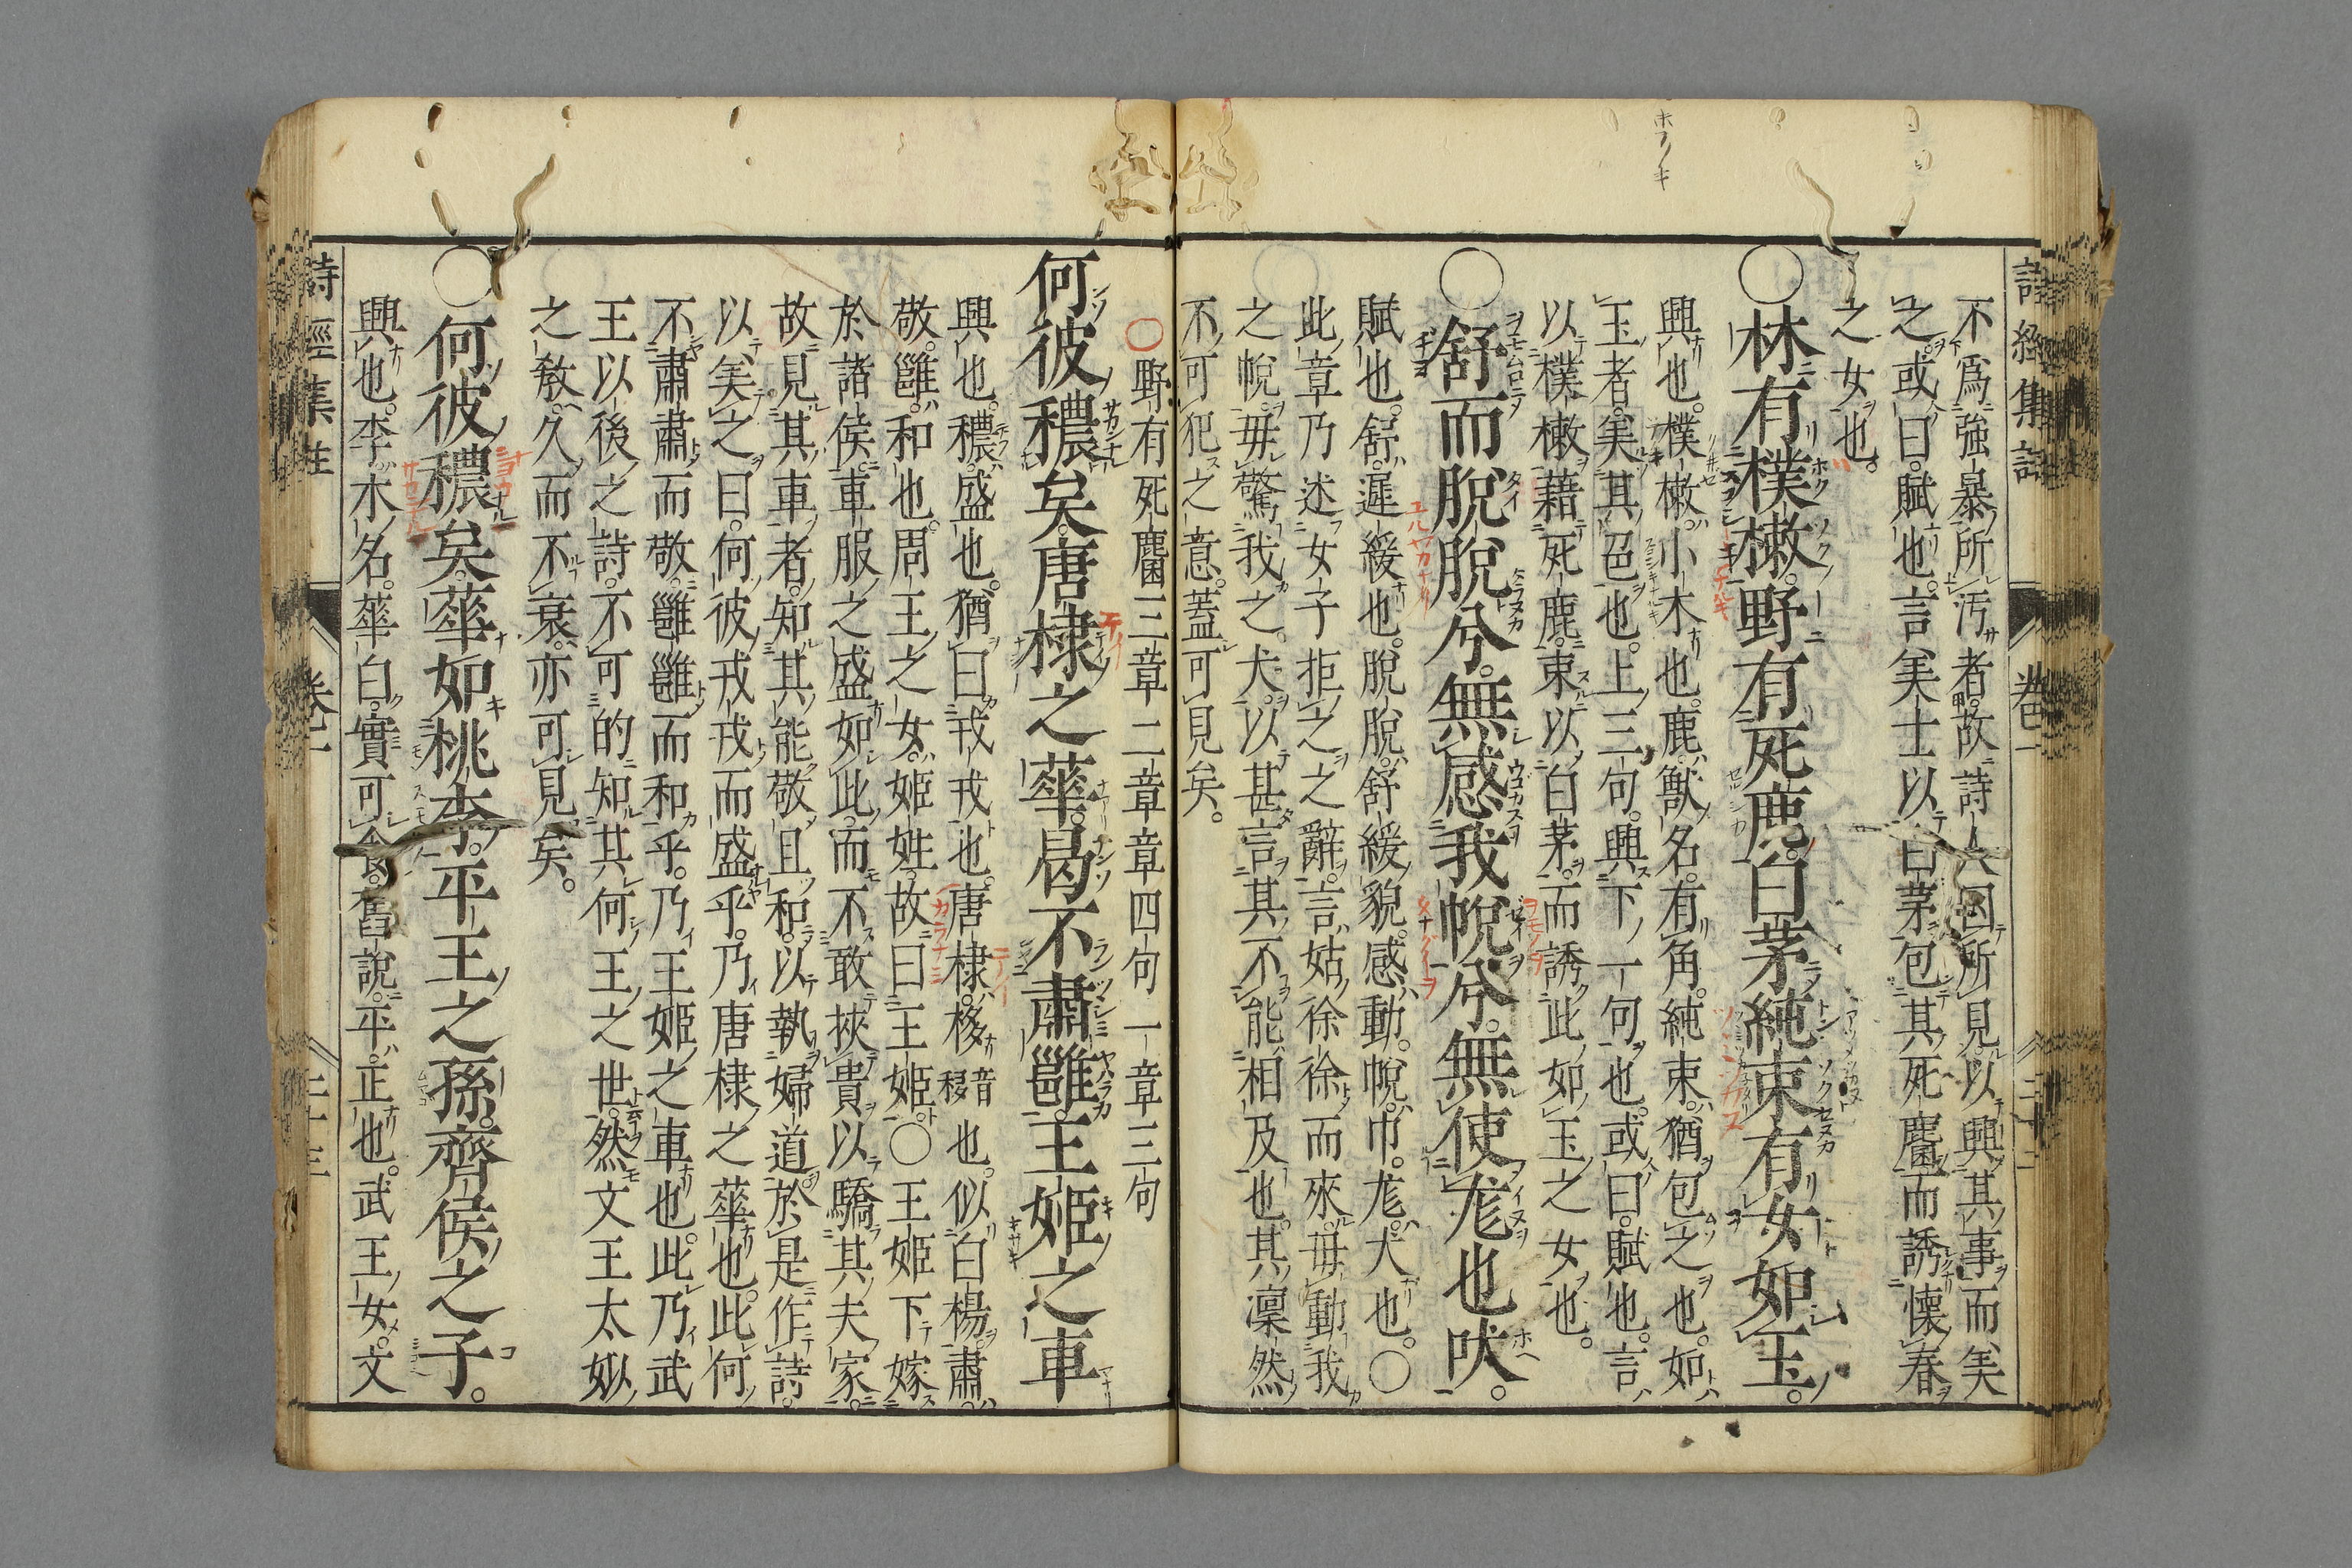 詩經集註 卷一
不爲強暴所汚者。故詩人因所見以興其事而美
之。或曰。賦也。言美士以白茅包其死麕而誘懷春
之女也。
○林有樸樕。野有死鹿。白茅純束。有女如玉。
興也。樸樕。小木也。鹿獸名。有角。純束。猶包之也。如
玉者。美其色也。上三句。興下一句也。或曰。賦也。言
以樸樕藉死鹿。束以白茅。而誘此如玉之女也。
○舒而脫脫兮。無感我帨兮。無使尨也吠。
賦也。舒。遲緩也。脫脫。舒緩貌。感動。帨。巾。尨。犬也。○
此章乃述女子拒之之辭。言姑徐徐而來。毋動我
之帨。毋驚我之犬。以甚言其不能相及也。其凜然
不可犯之意。蓋可見矣。
○野有死麕三章二章章四句一章三句
何彼穠矣。唐棣之華。曷不肅雝。王姬之車
興也。穠。盛也。猶曰戎戎也。唐棣。栘音移也。似白楊。肅。
敬。雝。和也。周王之女。姬姓。故曰王姬。○王姬下嫁
於諸侯。車服之盛如此。而不敢挾貴以驕其夫家。
故見其車者。知其能敬且和。以執婦道。於是作詩。
以美之曰。何彼戎戎而盛乎。乃唐棣之華也。此何
不肅肅而敬。雝雝而和乎。乃王姬之車也。此乃武
王以後之詩。不可的知其何王之世。然文王太姒
之敎。久而不衰。亦可見矣。
○何彼穠矣。華如桃李。平王之孫。齊侯之子。
興也。李。木名。華白。實可食。舊說。平。正也。武王女。文
詩經集註 卷一 二十三